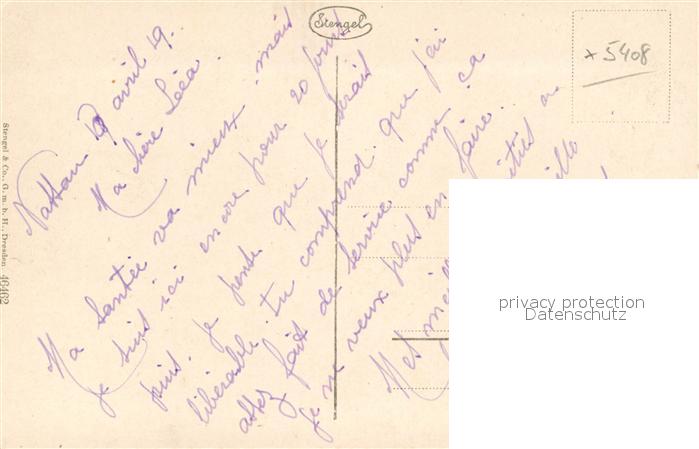 Stengel
x 5408
avril 19.
Ma chère Lééa.
Ma santée va mieux mais
je suis ici encore pour 20 jours
puis je pense que je serais
libérable. tu comprend que j'ai
assez fait de service comme ça
je ne veux plus en faire.
Stengel & Co., G. m. b. H., Dresden 46462
privacy protection
Datenschutz